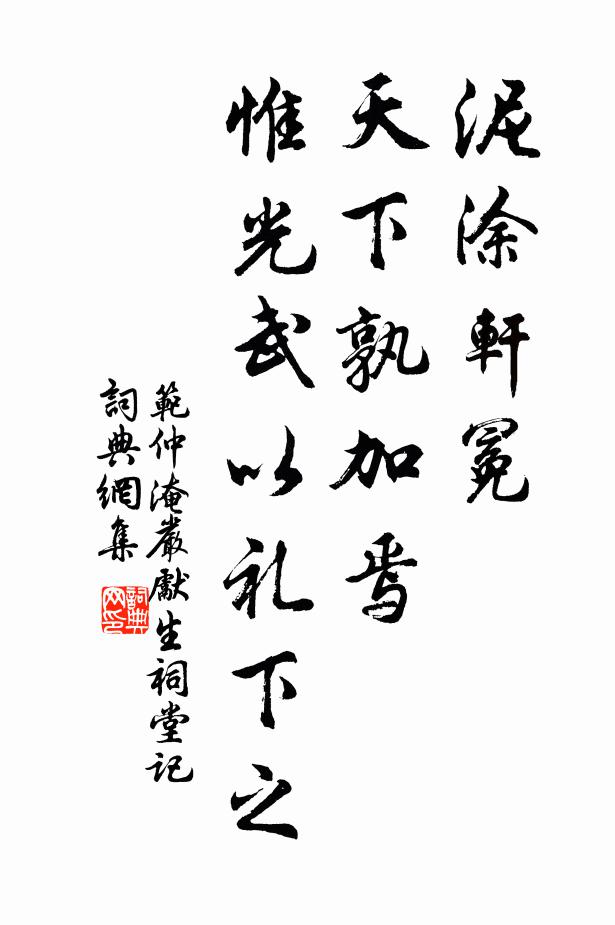 泥涂軒冕
天下孰加焉
惟光武以礼下之
範仲淹嚴獻生祠堂记
詞典網集
詞典网印